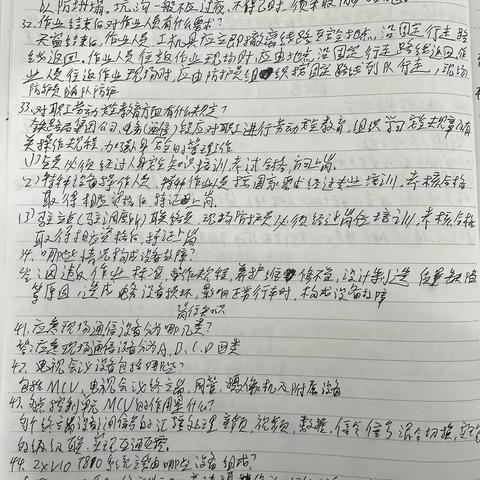 以防摔塌、坑沟一般不应过夜，不得已时，须采取
32.作业结束后对作业人员有什么要求？
天窗结束后，作业人员、工机具应立即撤离线路至安全地点，沿固定行走路
线返回，作业人员往返作业现场时，应由地点沿固定行走路线返回，作
业人员往返作业现场时应由防护员组织按固定路线列队行走，现场
防护员随队防护
33.对职工劳动安全教育方面有什么规定？
铁路局集团公司、电务(通信)段应对职工进行劳动安全教育，组织学习安全规章及有
关操作规程，加强人身安全的管理工作
(1)全员必须经过人身安全知识培训，考试合格，方可上岗
(2)特种设备操作人员、特种作业人员按国家要求经过专业培训，考核合格
取得相应资格后，持证上岗
(3)驻站(驻调度所)联络员、现场防护员必须经过岗位培训，考核合格
取得相应资格后，持证上岗
34.哪些情况构成设备故障？
答:因违反作业标准、操作规程、养护维修不宜、设计制造质量缺陷
等原因，造成电务设备损坏，影响正常行车时，构成设备故障
岗位知识
41.应急现场通信设备分为哪几类？
答:应急现场通信设备分为A、B、C、D四类
42.电视会议设备包括哪些？
包括MCU、电视会议终端、网管、摄像机及附属设备
43.MCU的作用是什么？
各终端设备间信号的汇接处理，音频、视频、数据、信令信号混合切换，实现
的级级联，实现互通互控
44.